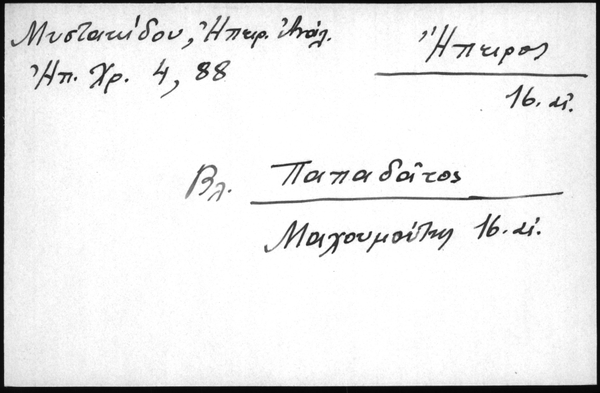 Μυστακίδου, Ἠπειρ. Ἀνάλ.
Ἠπ. Χρ. 4, 88
Ἤπειρος
16. αἰ.
Βλ. Παπαδᾶτος
Μαχουμούτης 16. αἰ.